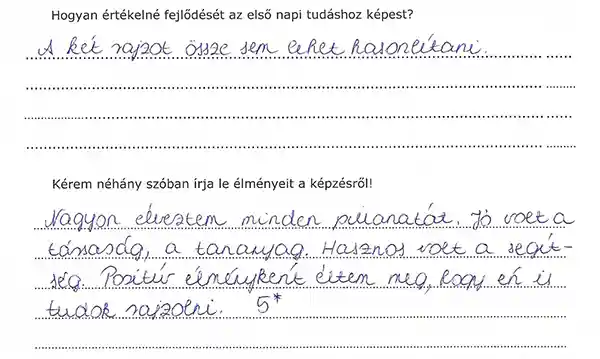 Hogyan értékelné fejlődését az első napi tudáshoz képest?
A két rajzot össze sem lehet hasonlítani.
Kérem néhány szóban írja le élményeit a képzésről!
Nagyon élveztem minden pillanatát. Jó volt a
társaság, a tananyag. Hasznos volt a segít-
ség. Pozitív élményként éltem meg, hogy én is
tudok rajzolni. 5*